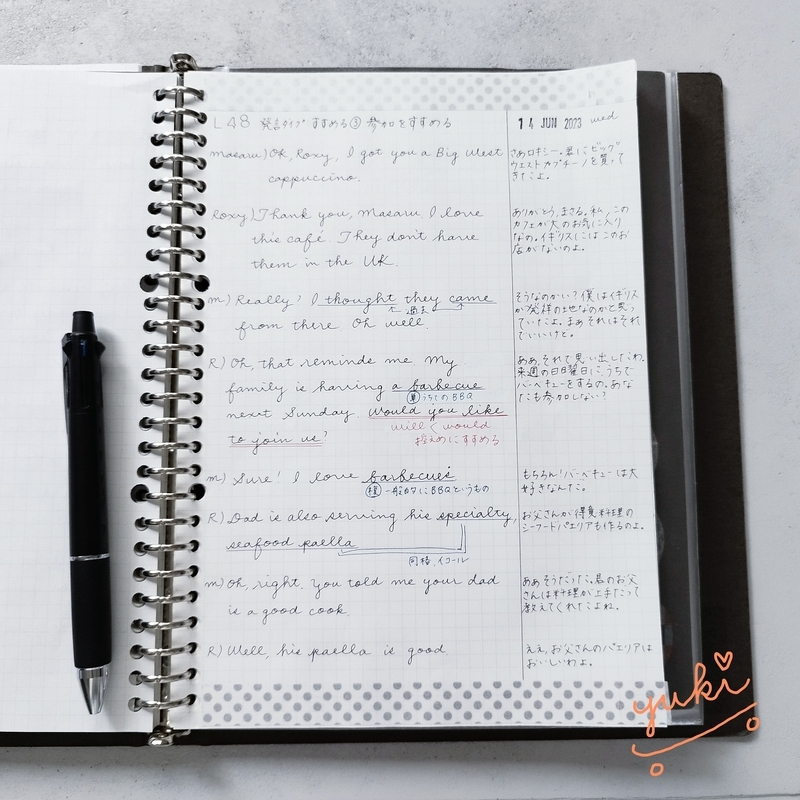 L48 発言タイプ すすめる③ 参加をすすめる
14 JUN 2023 wed
masaru) Ok, Roxy, I got you a Big West
cappuccino.
さあロキシー。君にビッグ
ウエストカプチーノを買って
きたよ。
Roxy) Thank you, Masaru. I love
this café. They don't have
them in the UK.
ありがとう、まさる。私、この
カフェが大のお気に入り
なの。イギリスにはこのお
店がないのよ。
m) Really? I thought they came
← 過去 ↑
from there. Oh well.
そうなのかい？僕はイギリス
が発祥の地なのかと思っ
ていたよ。まぁそれはそれ
でいいけど。
R) Oh, that reminds me. My
family is having a barbecue
単 うちでのBBQ
next Sunday. Would you like
will < would
to join us?
控えめにすすめる
ああそれで思い出したわ。
来週の日曜日に、うちで
バーベキューをするの。あな
たも参加しない？
m) Sure! I love barbecues.
複 一般的にBBQというもの
もちろん！バーベキューは大
好きなんだ。
R) Dad is also serving his specialty,
seafood paella
同格、イコール
お父さんが得意料理の
シーフードパエリアも作るのよ。
m) Oh, right. You told me your dad
is a good cook.
ああそうだった。君のお父
さんは料理が上手だって
教えてくれたよね。
R) Well, his paella is good.
ええ、お父さんのパエリアは
おいしいわよ。
yuki